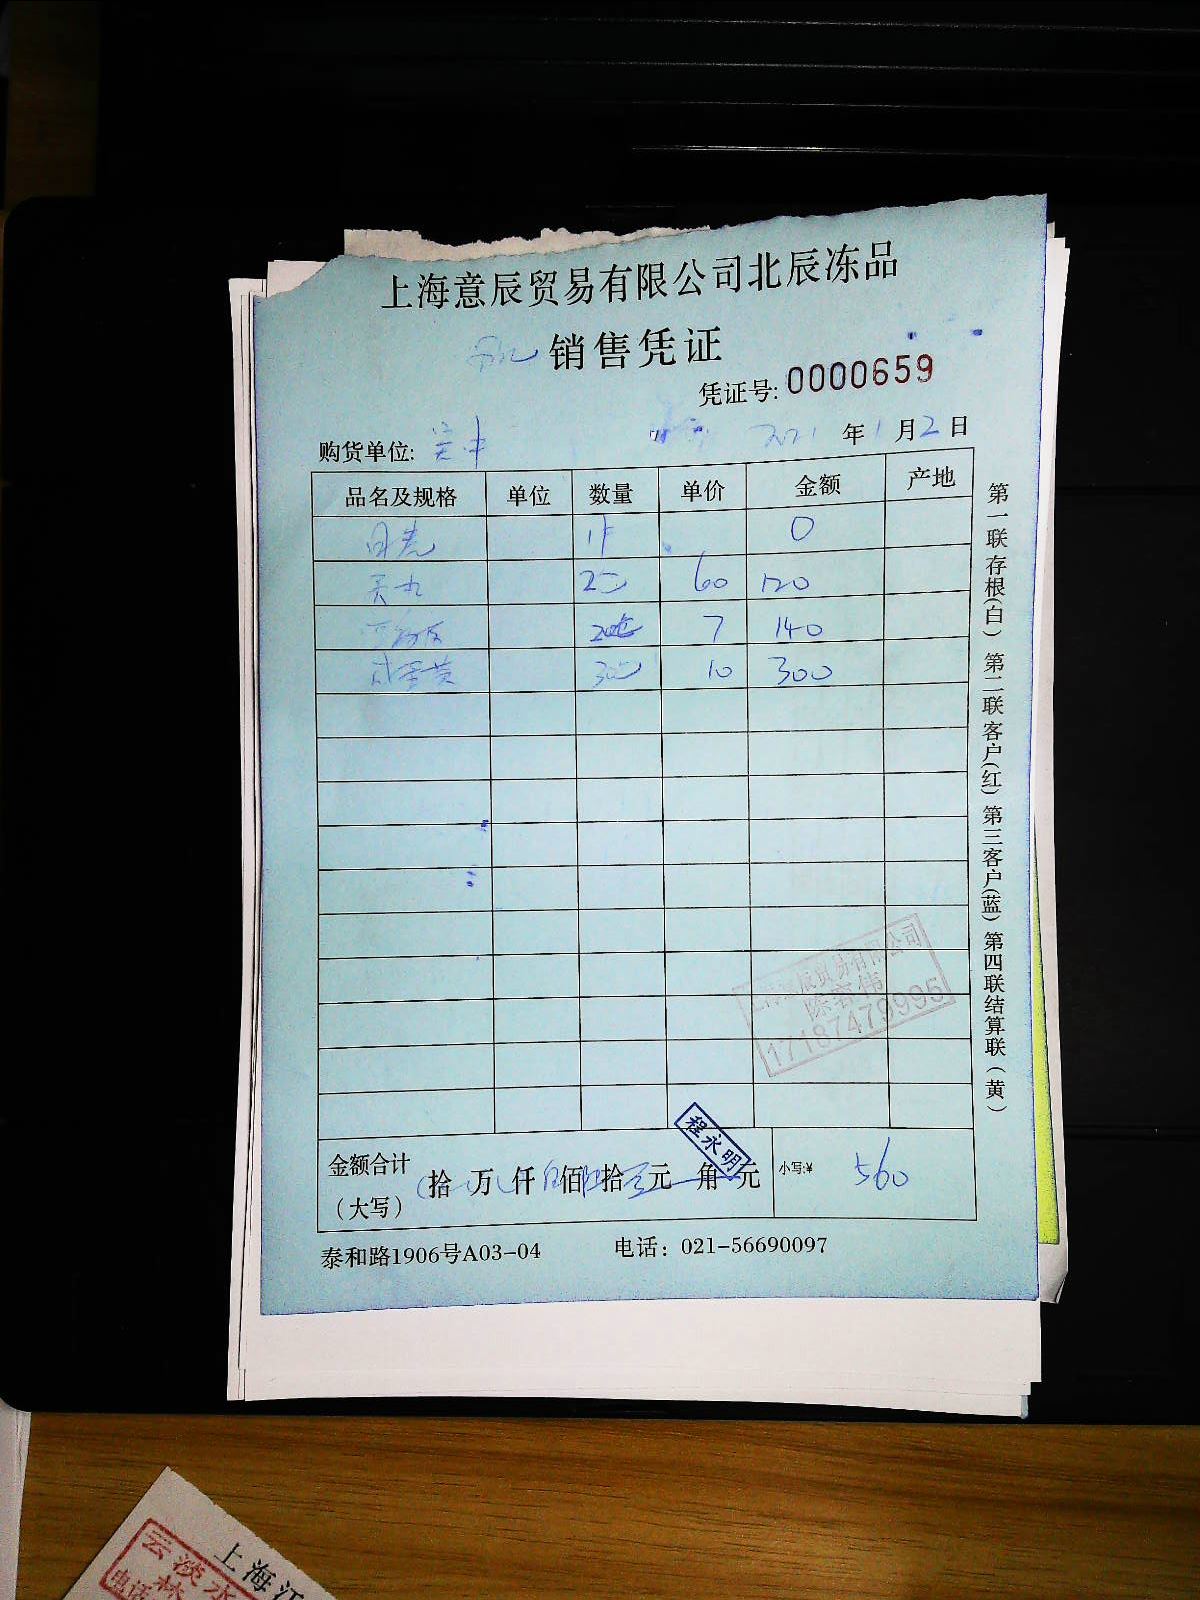 上海意辰贸易有限公司北辰冻品
销售凭证
凭证号: 0000659
购货单位: 2021 年 1 月 2 日
品名及规格 单位 数量 单价 金额 产地
0
60 120
7 140
咸蛋黄 10 300
上海意辰贸易有限公司
陈容伟
17187479995
程永明
金额合计 拾 万 仟 佰 拾 元 角 元 小写:¥ 560
(大写)
泰和路1906号A03-04 电话: 021-56690097
第一联存根(白) 第二联客户(红) 第三客户(蓝) 第四联结算联(黄)
上海江
云淡水
林
电话